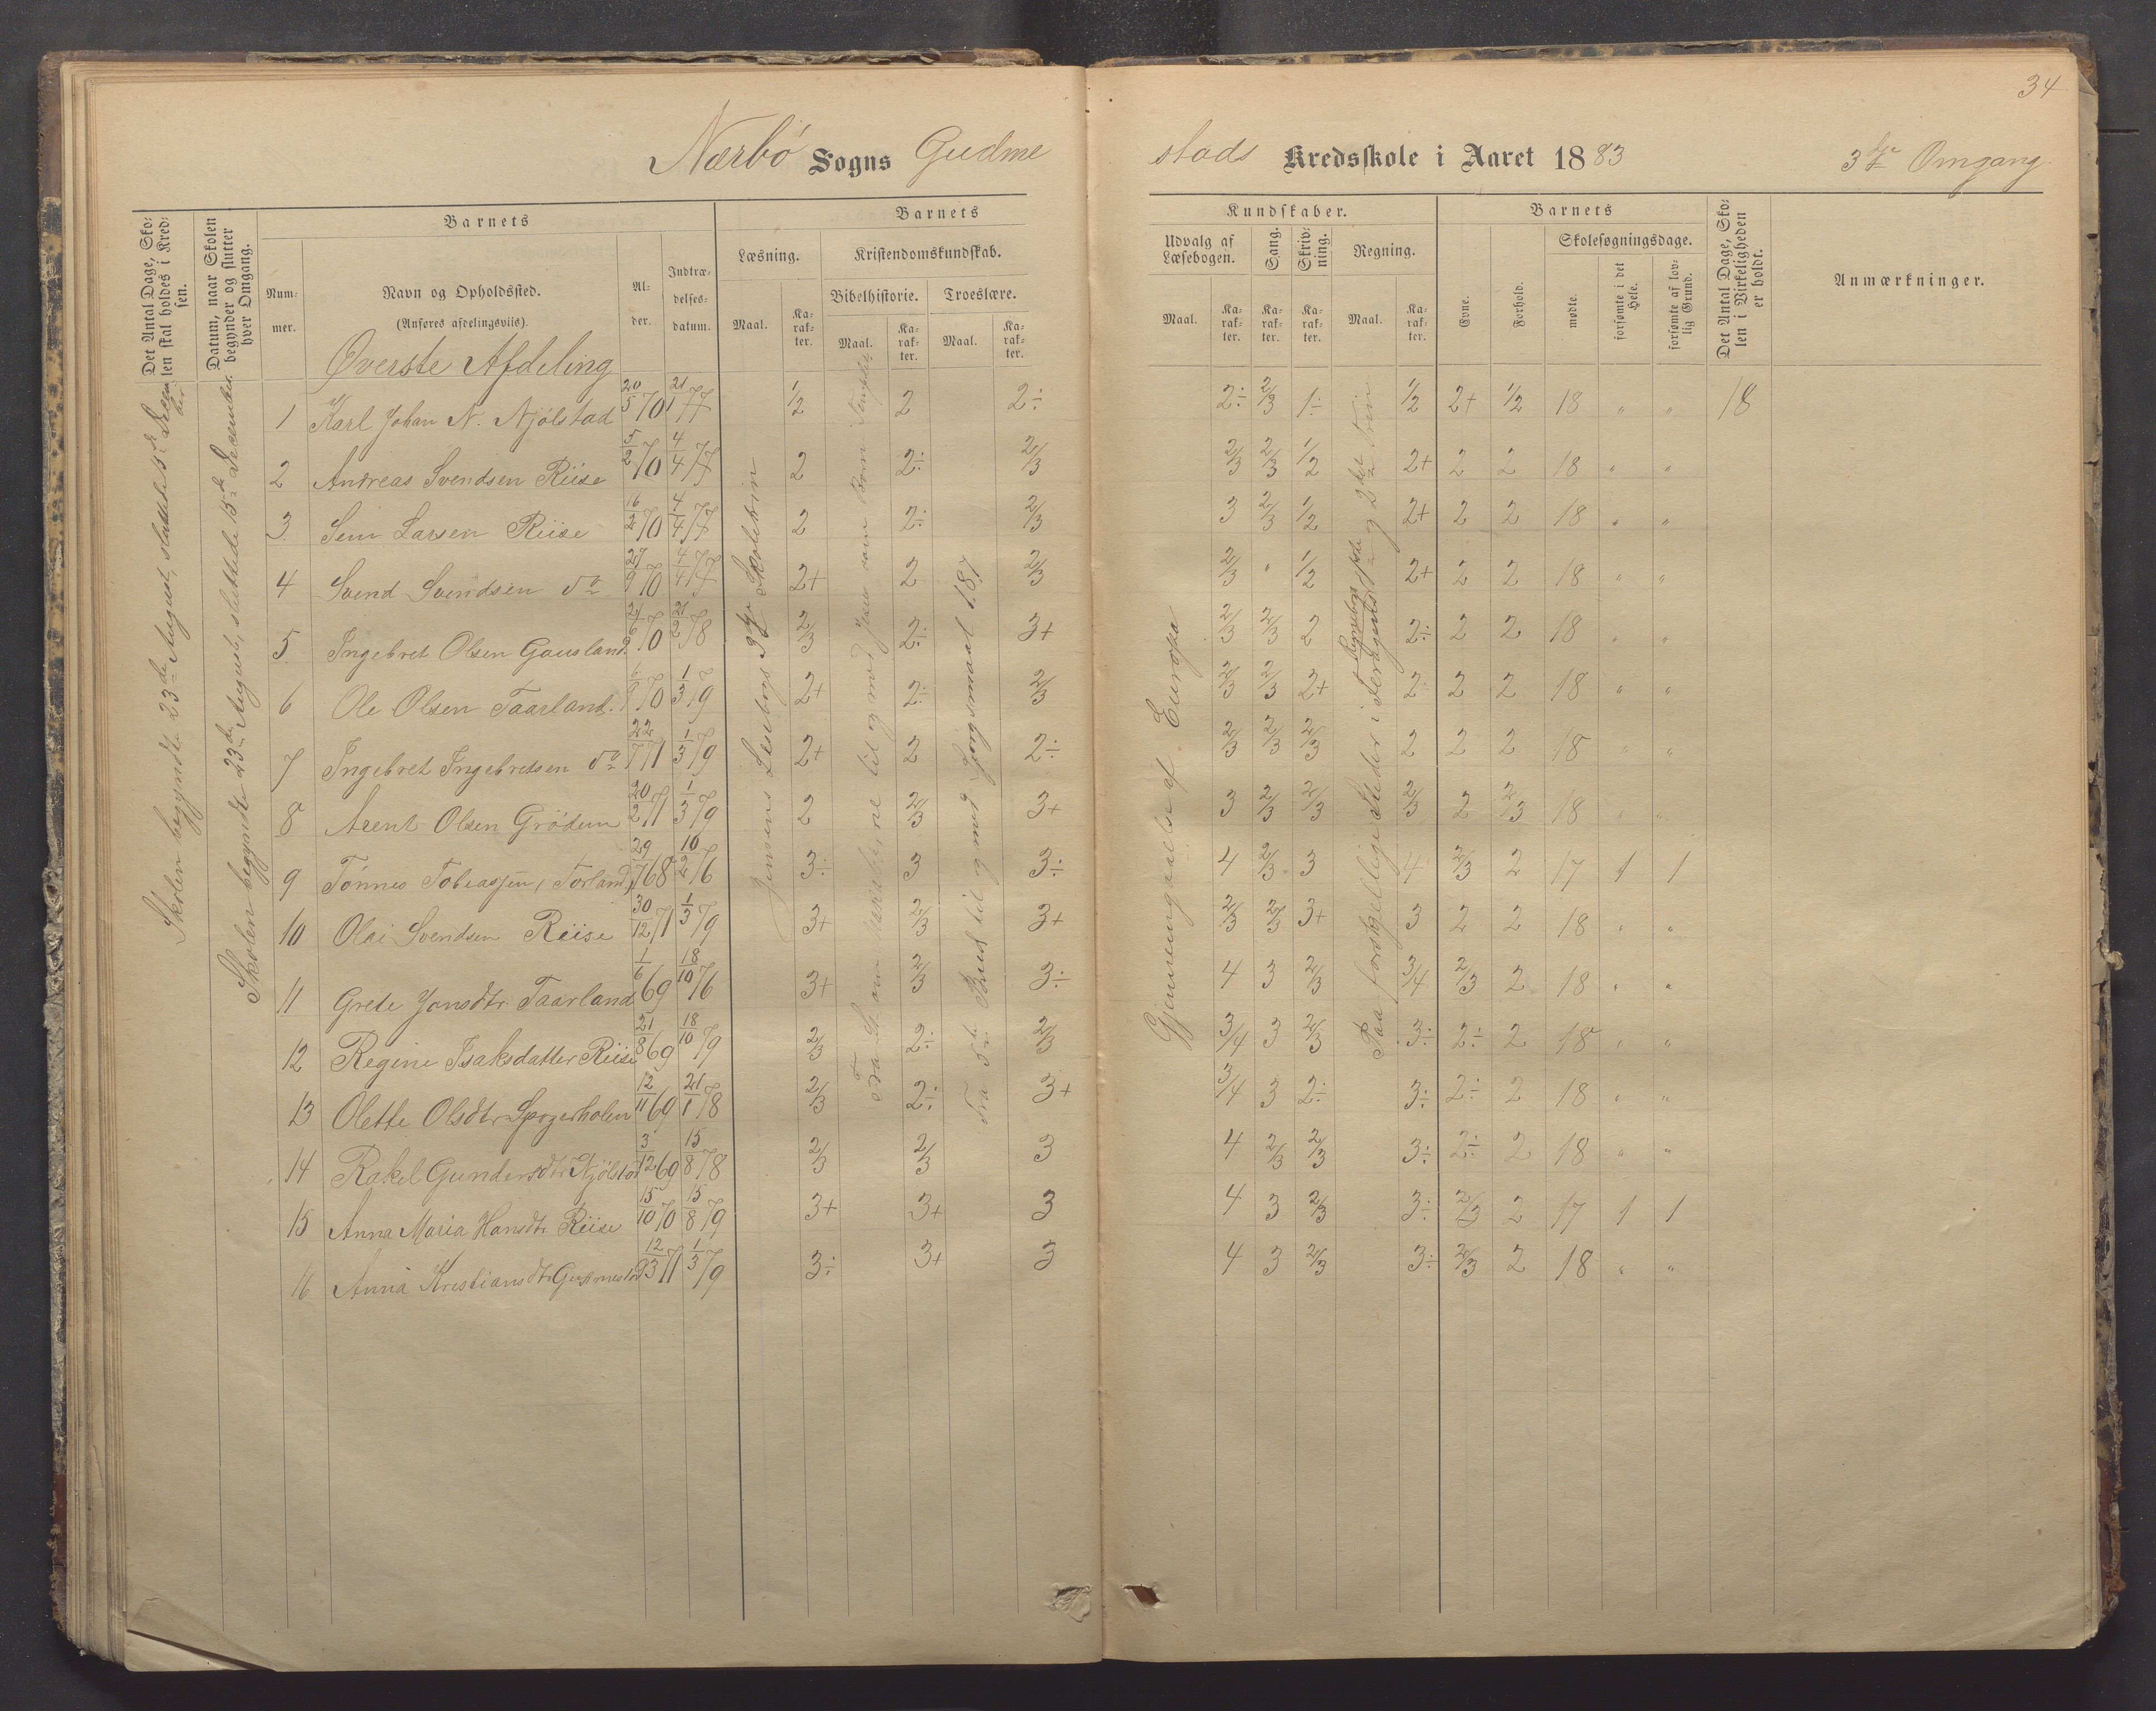 34
Nærbø Sogns Gudme
stads Kredsskole i Aaret 1883
3die Omgang.
Det Antal Dage, Sko-
len skal holdes i Kred-
sen.
Datum, naar Skolen
begynder og slutter
hver Omgang.
Barnets
Num-
mer.
Navn og Opholdssted.
(Anføres afdelingsviis).
Al-
der.
Indtræ-
delses-
datum.
Barnets
Læsning.
Maal.
Ka-
rak-
ter.
Kristendomskundskab.
Bibelhistorie.
Troeslære.
Maal.
Ka-
rak-
ter.
Maal.
Ka-
rak-
ter.
Kundskaber.
Udvalg af
Læsebogen.
Sang.
Skriv-
ning.
Regning.
Maal.
Ka-
rak-
ter.
Ka-
rak-
ter.
Ka-
rak-
ter.
Maal.
Ka-
rak-
ter.
Barnets
Evne.
Forhold.
Skolesøgningsdage.
mødte.
forsømte i det
Hele.
forsømte af lov-
lig Grund.
Det Antal Dage, Sko-
len i Virkeligheden
er holdt.
Anmærkninger.
Øverste Afdeling
Skolen begyndte 23de August, sluttede 15de December
Skolen begyndte 23de August, sluttede 15de December.
Jensens Læsebogs 3die Skoletrin
til og med
Fra 5te Bud til og med Spørgsmaal 187
Gjennemgaaelse af Europa
Paa forskjellige Steder i
1 Karl Johan N. Njølstad 20/5 70 21/1 77 1/2 2 2÷ 2÷ 2/3 1÷ 1/2 2+ 1/2 18 " " 18
2 Andreas Svendsen Riise 5/2 70 4/4 77 2 2÷ 2/3 2/3 2/3 1/2 2+ 2 2 18 " "
3 Sem Larsen Riise 16/2 70 4/4 77 2 2÷ 2/3 3 2/3 1/2 2+ 2 2 18 " "
4 Svend Svendsen do 27/9 70 4/4 77 2+ 2 2/3 2/3 " 1/2 2+ 2 2 18 " "
5 Ingebret Olsen Gausland 70 21/2 78 2/3 2÷ 3+ 2/3 2/3 2 2÷ 2 2 18 " "
6 Ole Olsen Taarland. 70 1/3 79 2+ 2÷ 2/3 2/3 2/3 2+ 2 2 2 18 " "
7 Ingebret Ingebretsen do 22/7 71 1/3 79 2+ 2 2÷ 2/3 2/3 2/3 2 2 2 18 " "
8 Arent Olsen Grødem 20/2 71 1/3 79 2 2/3 3+ 3 2/3 2/3 2/3 2 2/3 18 " "
9 Tønnes Tobiassen, Torland, 29/7 68 10/2 76 3÷ 3 3÷ 4 2/3 3 4 2/3 2 17 1 1
10 Olai Svendsen Reiise 30/12 71 1/3 79 3+ 2/3 3+ 2/3 2/3 3+ 3 2 2 18 " "
11 Grete Jonsdtr Taarland 1/6 69 18/10 76 3+ 2/3 3÷ 4 3 2/3 3/4 2/3 2 18 " "
12 Regine Isaksdatter Riise 21/8 69 18/10 79 2/3 2÷ 2/3 3/4 3 2/3 3÷ 2÷ 2 18 " "
13 Olette Olsdtr 12/11 69 21/1 78 2/3 2÷ 3+ 3/4 3 2÷ 3÷ 2÷ 2 18 " "
14 Rakel Gundersdtr Njølstad 3/12 69 15/8 78 2/3 2/3 3 4 2/3 2/3 3÷ 2÷ 2 18 " "
15 Anna Maria Hansdtr Riise 15/10 70 15/8 79 3+ 3+ 3 4 3 2/3 3÷ 2/3 2 17 1 1
16 Anna Kristiansdtr Gudmestad 12/3 71 1/3 79 3÷ 3+ 3 4 3 2/3 3÷ 2/3 2 18 " "